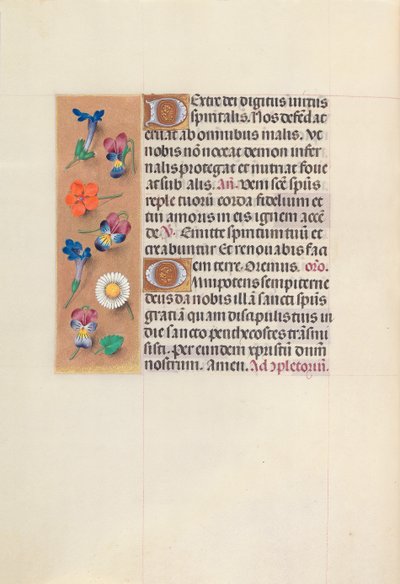 Dextre dei digitus virtus
spiritalis. Nos defēd at
eruat ab omnibus malis. Vt
nobis nō noceat demon infer
nalis protegat et nutriat foue
at sub alis. Añ. Veni scē spūs
reple tuorū corda fidelium et
tui amoris in eis ignem accē
de ꝟ. Emitte spiritum tuū et
creabuntur Et renouabis faci
em terre. Oremus. orō.
Omnipotens sempiterne
deus da nobis illā sancti spūs
gratiā quam discipulis tuis in
die sancto penthecostes trāsmi
sisti. Per eundem xpristū dnm̄
nostrum. Amen. Ad ↄpletoriū.